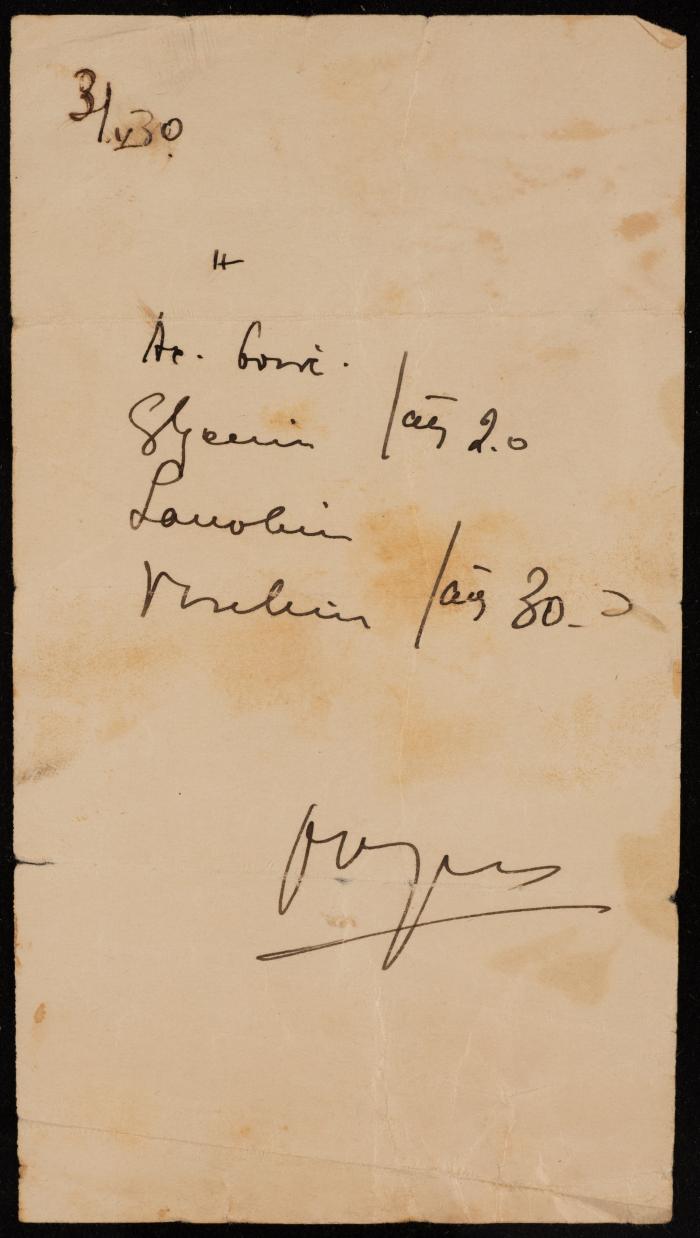 3/V 30.
Ac. boric.
Glycerin / āā 2.0
Lanolin
Vaselin / āā 30.0